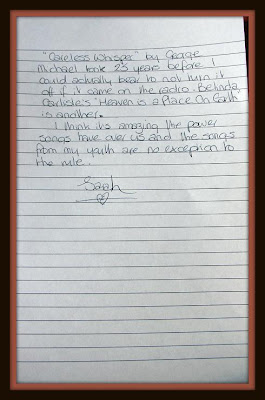 "Careless Whisper" by George
Michael took 25 years before I
could actually bear to not turn it
off if it came on the radio. Belinda
Carlisle's "Heaven is a Place On Earth
is another.
I think its amazing the power
songs have over us and the songs
from my youth are no exception to
the rule..
Sarah